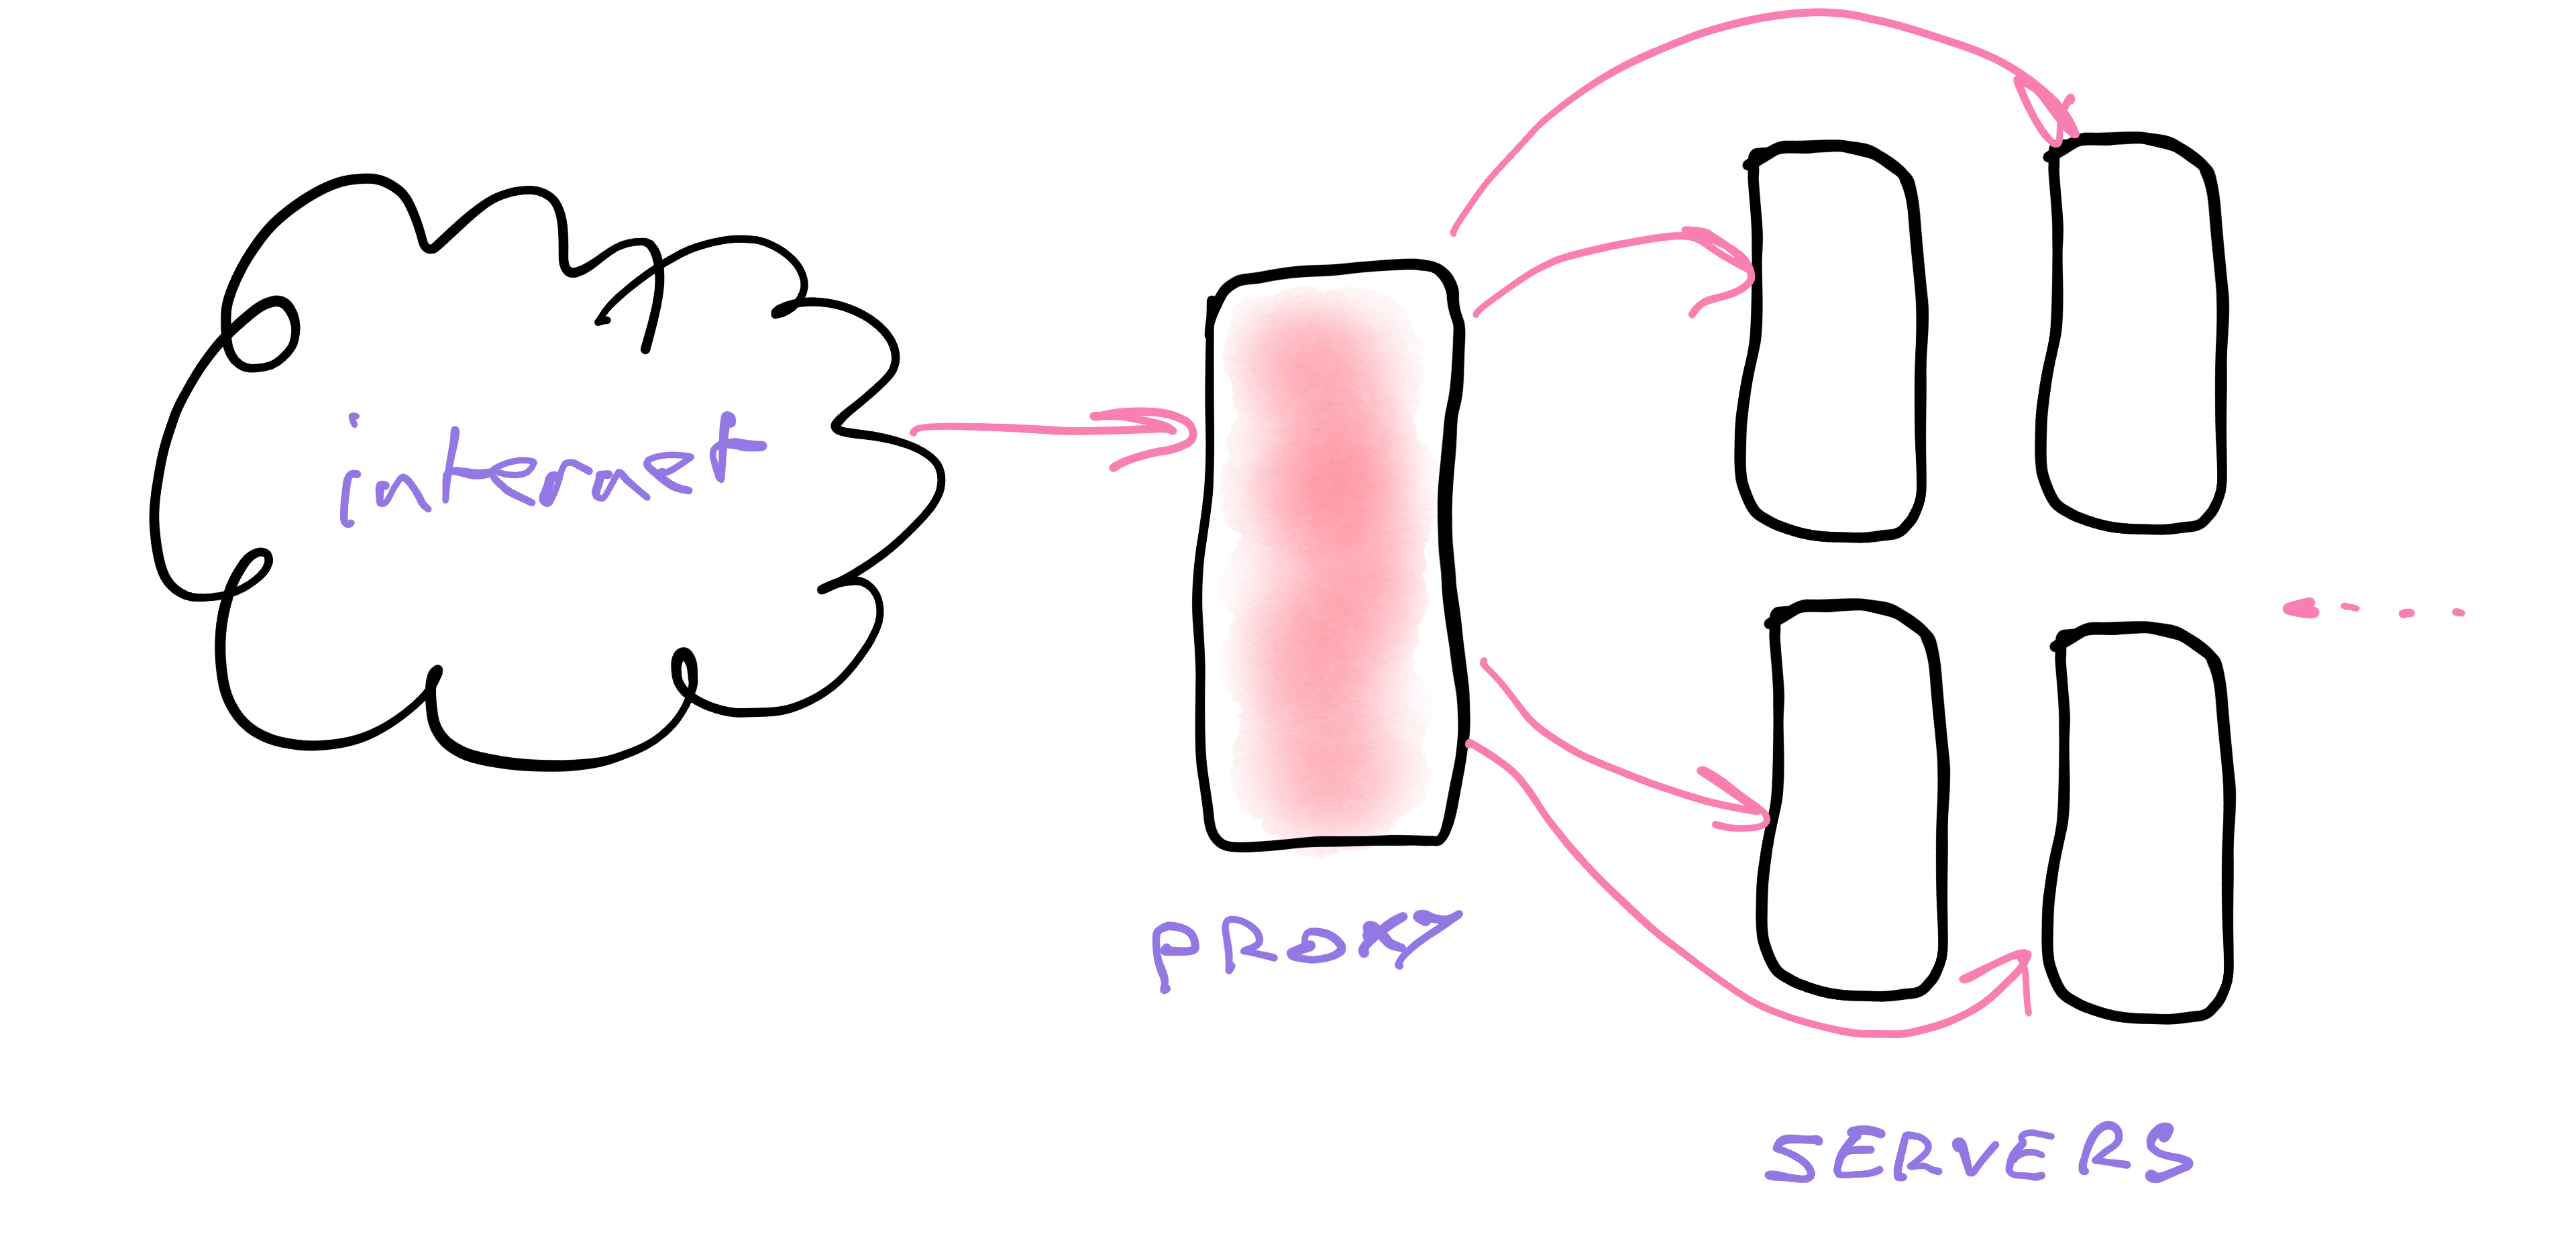 internet
PROXY
SERVERS